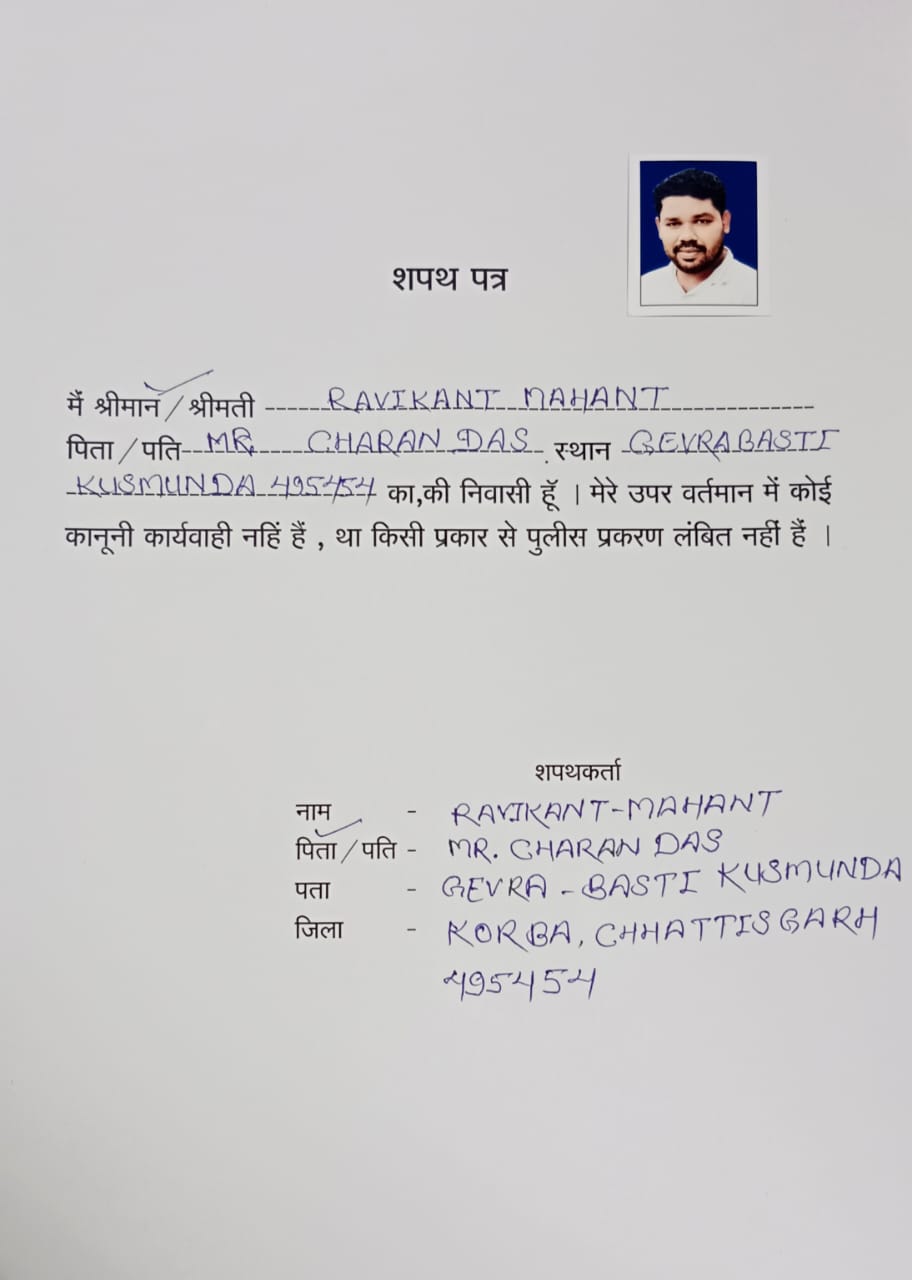 शपथ पत्र
मैं श्रीमान / श्रीमती ---- RAVIKANT MAHANT ----
पिता / पति -- MR. CHARAN DAS . स्थान - GEVRABASTI
KUSMUNDA 495454 का,की निवासी हूँ । मेरे उपर वर्तमान में कोई
कानूनी कार्यवाही नहिं हैं , था किसी प्रकार से पुलीस प्रकरण लंबित नहीं हैं ।
शपथकर्ता
नाम - RAVIKANT-MAHANT
पिता / पति - MR. CHARAN DAS
पता - GEVRA - BASTI KUSMUNDA
जिला - KORBA, CHHATTISGARH
495454